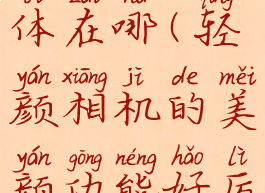 体在哪(轻
yán xiāng jī de měi
颜相机的美
yán gōng néng hǎo lì
颜功能好厉